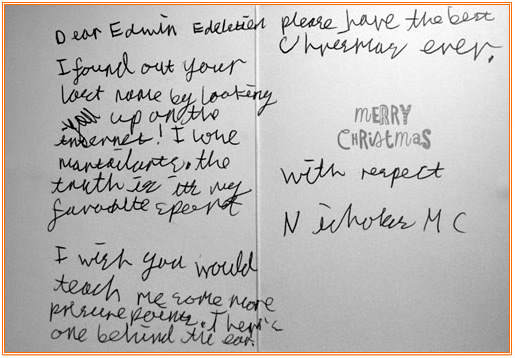 Dear Edwin Edeletien
I found out your
last name by looking
you up on the
internet! I love
marsailarts. the
truth is its my
favodite speort
I wish you would
teach me some more
presure points. There's
one behind the ear.
please have the best
Chresmas ever.
MERRY
CHRiSTMAS
with respect
Nicholas M C